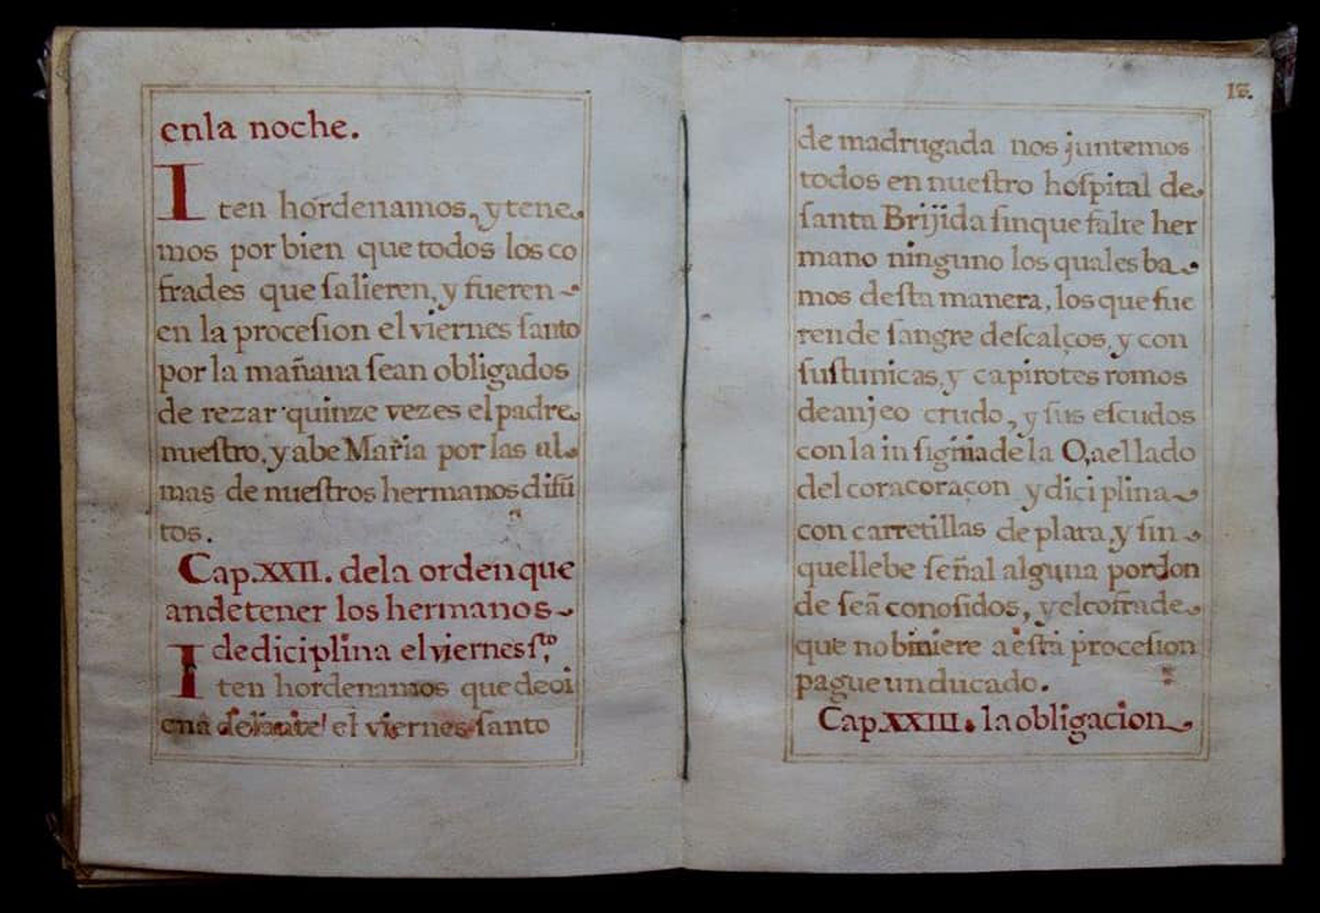 enla noche.
Iten hordenamos, y tene
mos por bien que todos los co
frades que salieren, y fueren
en la procesion el viernes santo
por la mañana sean obligados
de rezar quinze vezes el padre
nuestro, y abe Maria por las al
mas de nuestros hermanos difũ
tos.
Cap. XXII. dela orden que
an de tener los hermanos
de diciplina el viernes sto,
Iten hordenamos que de oi
en a delante el viernes santo
de madrugada nos juntemos
todos en nuestro hospital de
santa Brijida sin que falte her
mano ninguno los quales ba
mos desta manera, los que fue
ren de sangre descalços, y con
sus tunicas, y capirotes romos
de anjeo crudo, y sus escudos
con la insignia de la O, a el lado
del coracoraçon y diciplina
con carretillas de plata, y sin
que llebe señal alguna por don
de seã conosidos, y el cofrade
que no biniere a esta procesion
pague un ducado.
Cap. XXIII. la obligacion